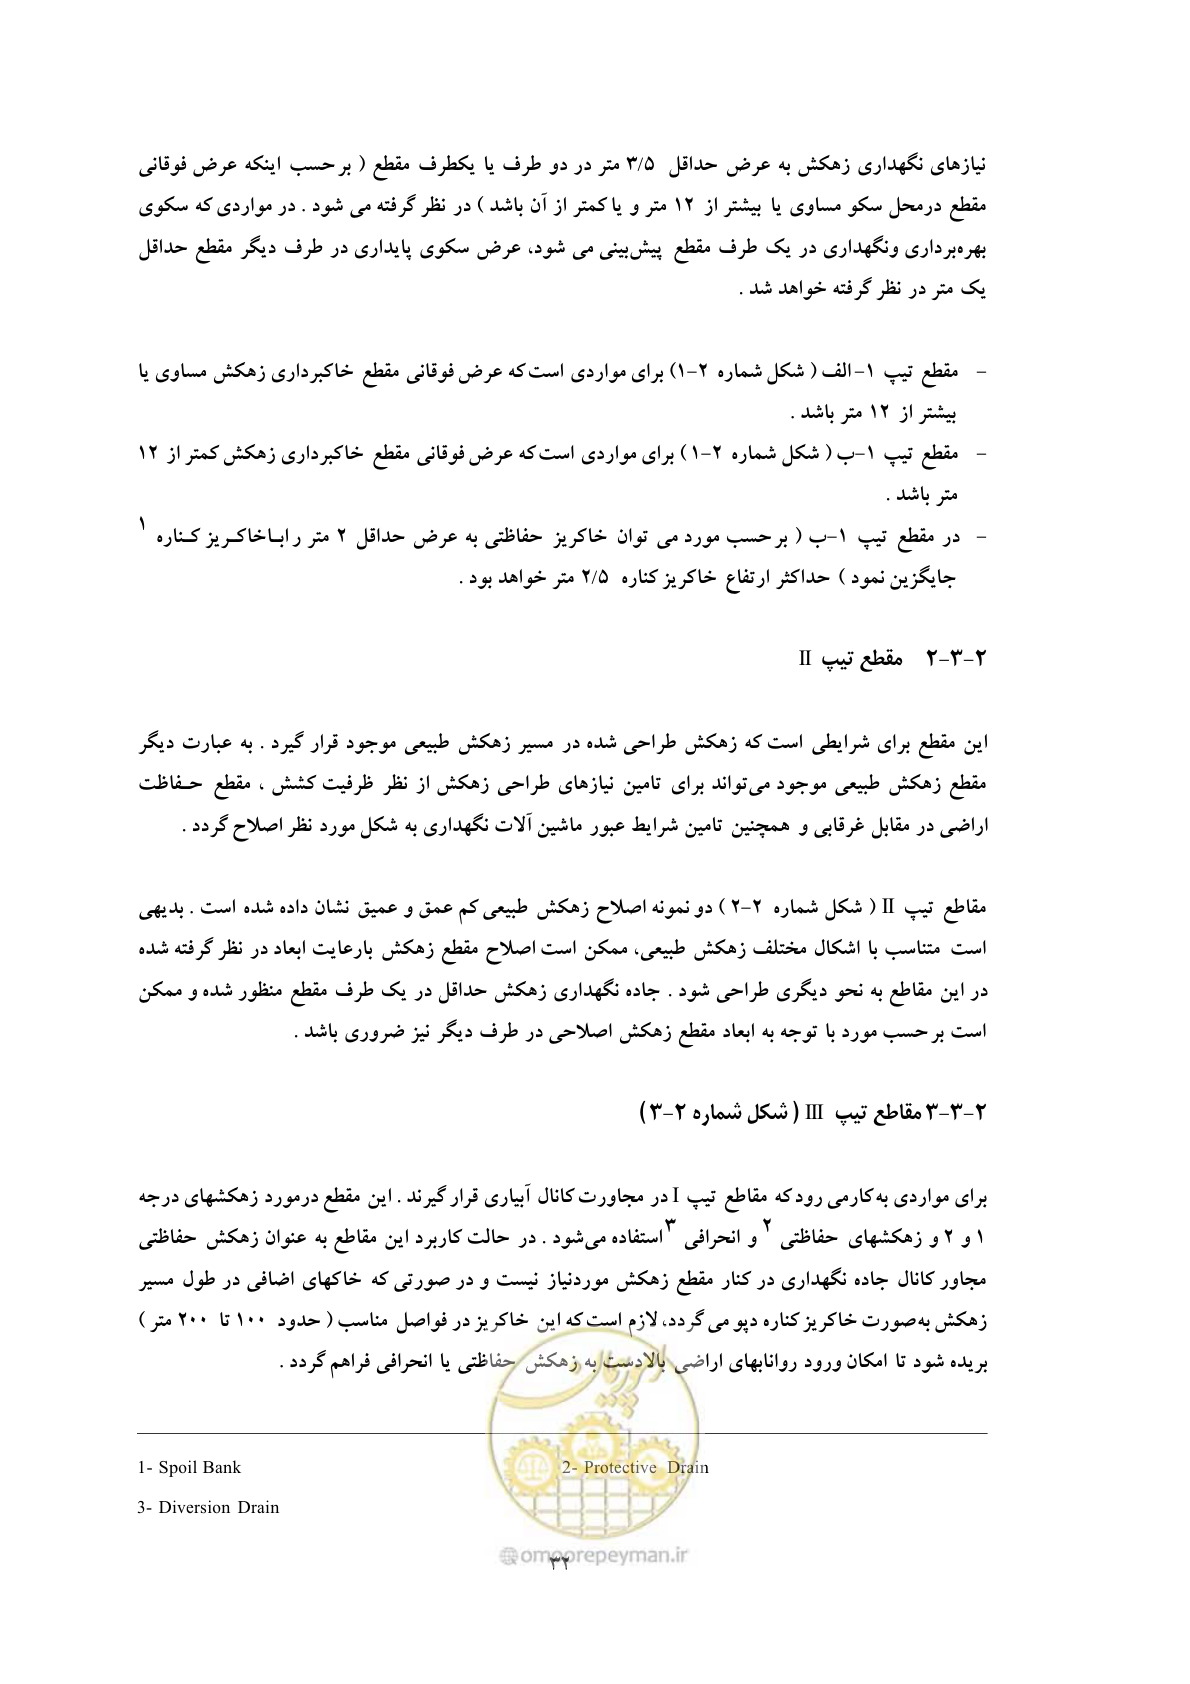 نیازهای نگهداری زهکش به عرض حداقل ۳/۵ متر در دو طرف یا یکطرف مقطع ( بر حسب اینکه عرض فوقانی
مقطع درمحل سکو مساوی یا بیشتر از ۱۲ متر و یا کمتر از آن باشد ) در نظر گرفته می شود . در مواردی که سکوی
بهره‌برداری ونگهداری در یک طرف مقطع پیش‌بینی می شود، عرض سکوی پایداری در طرف دیگر مقطع حداقل
یک متر در نظر گرفته خواهد شد .
– مقطع تیپ ۱-الف ( شکل شماره ۲-۱) برای مواردی است که عرض فوقانی مقطع خاکبرداری زهکش مساوی یا
بیشتر از ۱۲ متر باشد .
– مقطع تیپ ۱-ب ( شکل شماره ۲-۱ ) برای مواردی است که عرض فوقانی مقطع خاکبرداری زهکش کمتر از ۱۲
متر باشد .
– در مقطع تیپ ۱-ب ( بر حسب مورد می توان خاکریز حفاظتی به عرض حداقل ۲ متر را بـاخاکـریز کـناره ۱
جایگزین نمود ) حداکثر ارتفاع خاکریز کناره ۲/۵ متر خواهد بود .
۲-۳-۲ مقطع تیپ II
این مقطع برای شرایطی است که زهکش طراحی شده در مسیر زهکش طبیعی موجود قرار گیرد . به عبارت دیگر
مقطع زهکش طبیعی موجود می‌تواند برای تامین نیازهای طراحی زهکش از نظر ظرفیت کشش ، مقطع حـفاظت
اراضی در مقابل غرقابی و همچنین تامین شرایط عبور ماشین آلات نگهداری به شکل مورد نظر اصلاح گردد .
مقاطع تیپ II ( شکل شماره ۲-۲ ) دو نمونه اصلاح زهکش طبیعی کم عمق و عمیق نشان داده شده است . بدیهی
است متناسب با اشکال مختلف زهکش طبیعی، ممکن است اصلاح مقطع زهکش بارعایت ابعاد در نظر گرفته شده
در این مقاطع به نحو دیگری طراحی شود . جاده نگهداری زهکش حداقل در یک طرف مقطع منظور شده و ممکن
است بر حسب مورد با توجه به ابعاد مقطع زهکش اصلاحی در طرف دیگر نیز ضروری باشد .
۲-۳-۳ مقاطع تیپ III ( شکل شماره ۲-۳ )
برای مواردی به‌کارمی رود که مقاطع تیپ I در مجاورت کانال آبیاری قرار گیرند . این مقطع درمورد زهکشهای درجه
۱ و ۲ و زهکشهای حفاظتی ۲ و انحرافی ۳ استفاده می‌شود . در حالت کاربرد این مقاطع به عنوان زهکش حفاظتی
مجاور کانال جاده نگهداری در کنار مقطع زهکش موردنیاز نیست و در صورتی که خاکهای اضافی در طول مسیر
زهکش به‌صورت خاکریز کناره دپو می گردد، لازم است که این خاکریز در فواصل مناسب ( حدود ۱۰۰ تا ۲۰۰ متر )
بریده شود تا امکان ورود روانابهای اراضی بالادست به زهکش حفاظتی یا انحرافی فراهم گردد .
1- Spoil Bank 2- Protective Drain
3- Diversion Drain
امور پیمان
@omoorepeyman.ir
۳۲